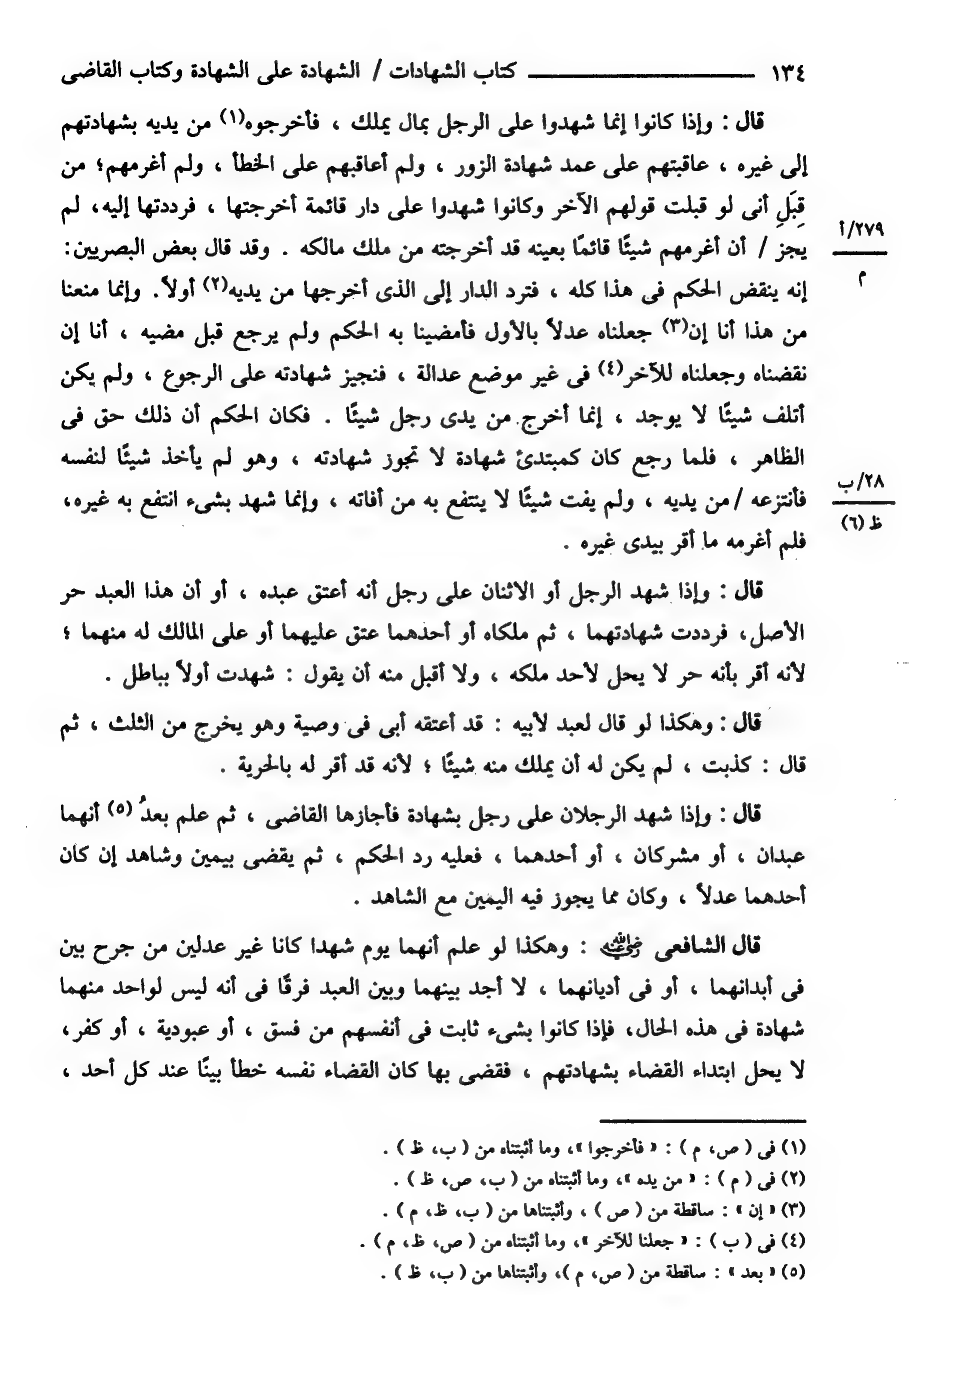 ١٣٤ ــــــــــــــــــــ كتاب الشهادات / الشهادة على الشهادة وكتاب القاضى
قال : وإذا كانوا إنما شهدوا على الرجل بمال يملك ، فأخرجوه(١) من يديه بشهادتهم
إلى غيره ، عاقبتهم على عمد شهادة الزور ، ولم أعاقبهم على الخطأ ، ولم أغرمهم؛ من
قِبَلِ أنى لو قبلت قولهم الآخر وكانوا شهدوا على دار قائمة أخرجتها ، فرددتها إليه، لم
٢٧٩/أ
يجز / أن أغرمهم شيئًا قائمًا بعينه قد أخرجته من ملك مالكه . وقد قال بعض البصريين:
م
إنه ينقض الحكم فى هذا كله ، فترد الدار إلى الذى أخرجها من يديه(٢) أولاً. وإنما منعنا
من هذا أنا إن(٣) جعلناه عدلاً بالأول فأمضينا به الحكم ولم يرجع قبل مضيه ، أنا إن
نقضناه وجعلناه للآخر(٤) فى غير موضع عدالة ، فنجيز شهادته على الرجوع ، ولم يكن
أتلف شيئًا لا يوجد ، إنما أخرج من يدى رجل شيئًا . فكان الحكم أن ذلك حق فى
الظاهر ، فلما رجع كان كمبتدئ شهادة لا تجوز شهادته ، وهو لم يأخذ شيئًا لنفسه
٢٨/ب
فأنتزعه / من يديه ، ولم يفت شيئًا لا ينتفع به من أفاته ، وإنما شهد بشىء انتفع به غيره،
ظ (٦)
فلم أغرمه ما أقر بيدى غيره .
قال : وإذا شهد الرجل أو الاثنان على رجل أنه أعتق عبده ، أو أن هذا العبد حر
الأصل، فرددت شهادتهما ، ثم ملكاه أو أحدهما عتق عليهما أو على المالك له منهما ؛
لأنه أقر بأنه حر لا يحل لأحد ملكه ، ولا أقبل منه أن يقول : شهدت أولاً بباطل .
قال : وهكذا لو قال لعبد لأبيه : قد أعتقه أبى فى وصية وهو يخرج من الثلث ، ثم
قال : كذبت ، لم يكن له أن يملك منه شيئًا ؛ لأنه قد أقر له بالحرية .
قال : وإذا شهد الرجلان على رجل بشهادة فأجازها القاضى ، ثم علم بعدُ (٥) أنهما
عبدان ، أو مشركان ، أو أحدهما ، فعليه رد الحكم ، ثم يقضى بيمين وشاهد إن كان
أحدهما عدلاً ، وكان مما يجوز فيه اليمين مع الشاهد .
قال الشافعى رضي الله عنه : وهكذا لو علم أنهما يوم شهدا كانا غير عدلين من جرح بين
فى أبدانهما ، أو فى أديانهما ، لا أجد بينهما وبين العبد فرقًا فى أنه ليس لواحد منهما
شهادة فى هذه الحال، فإذا كانوا بشىء ثابت فى أنفسهم من فسق ، أو عبودية ، أو كفر،
لا يحل ابتداء القضاء بشهادتهم ، فقضى بها كان القضاء نفسه خطأ بينًا عند كل أحد ،
(١) فى ( ص، م ) : « فأخرجوا »، وما أثبتناه من ( ب، ظ ) .
(٢) فى ( م ) : « من يده »، وما أثبتناه من ( ب، ص، ظ ) .
(٣) « إن » : ساقطة من ( ص ) ، وأثبتناها من ( ب، ظ، م ) .
(٤) فى ( ب ) : « جعلنا للآخر »، وما أثبتناه من ( ص، ظ، م ) .
(٥) « بعد » : ساقطة من ( ص، م )، وأثبتناها من ( ب، ظ ) .